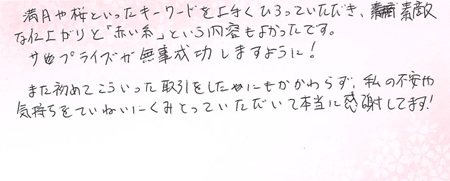 満月や桜といったキーワードを上手くひろっていただき、素敵
な仕上がりと「赤い糸」という内容もよかったです。
サプライズが無事成功しますように!
また初めてこういった取引をしたにもかかわらず、私の不安や
気持ちをていねいにくみとっていただいて本当に感謝してます!